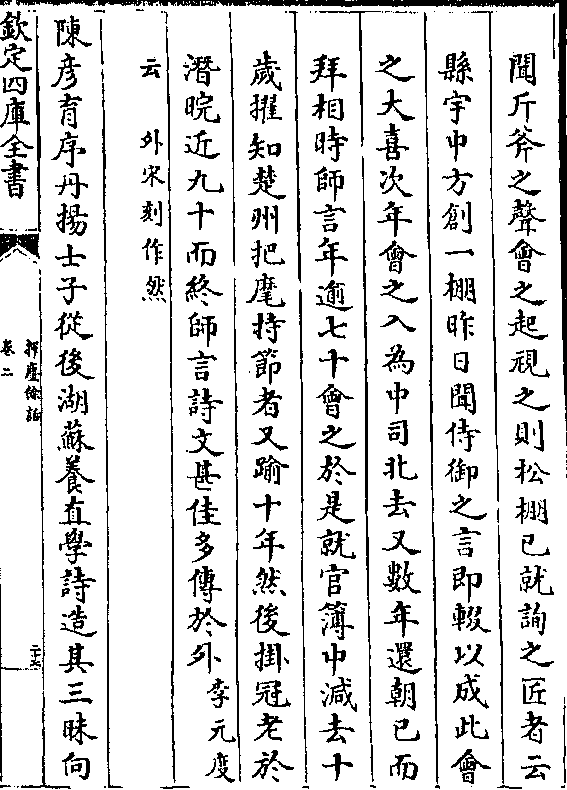 聞斤斧之聲會之起視之則松棚已就詢之匠者云
縣宇中方創一棚昨日聞侍御之言即輟以成此會
之大喜次年會之入為中司北去又數年還朝已而
拜相時師言年逾七十會之於是就官簿中減去十
歲擢知楚州把麾持節者又踰十年然後掛冠老於
潛晥近九十而終師言詩文甚佳多傳於外李元度
云 外宋刻作然
陳彦育序丹揚士子從後湖蘇養直學詩造其三昧向
欽定四庫全書
揮麈餘話
卷二
二十六